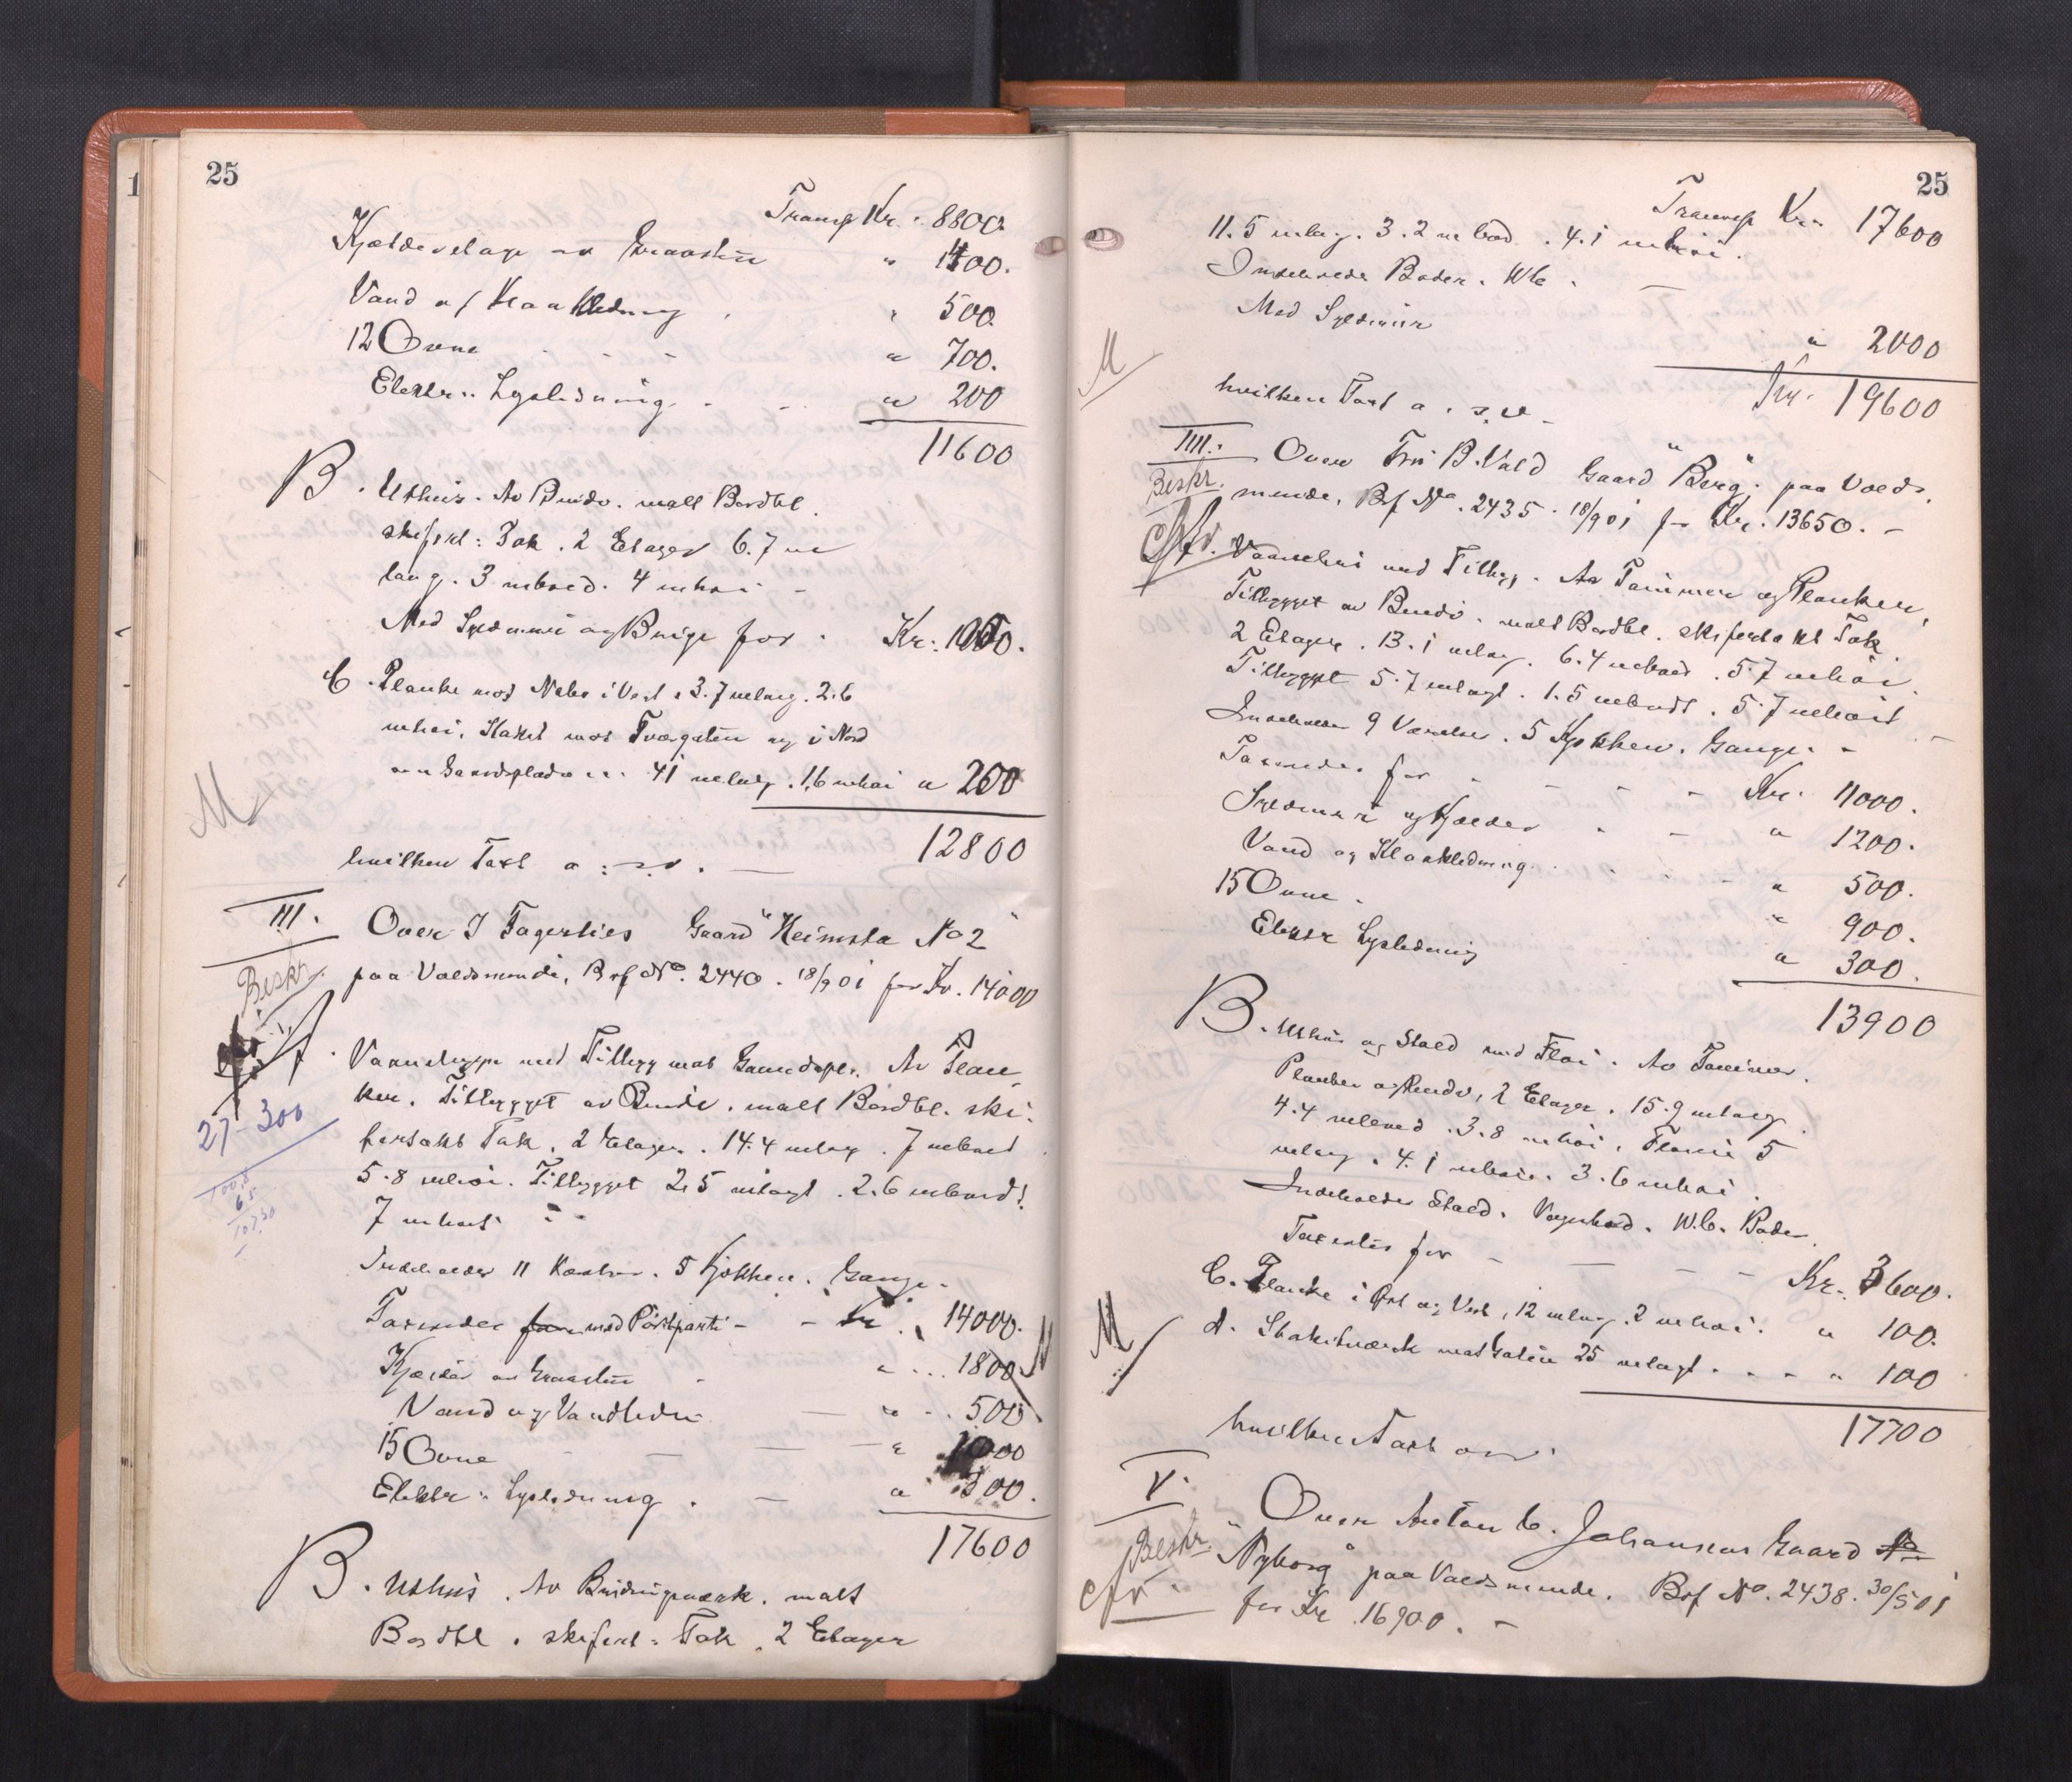 25
Transp Kr. 8800.
Kjælderetage av Graasten " 1400.
Vand og Kloakledning " 500.
12 Ovne " 700.
Elektr. Lysledning " 200
11600
B. Uthus. Av Bindv. malt Bordkl.
skifert: Tak. 2 Etager 6.7 m
lang. 3 m bred. 4 m høi
Med Syldmur og Bryge for Kr: 1000.
C. Planke mot Nabo i Vest 3.7 m lang. 2.6
m høi, Stakit mot Tværgaten og i Nord
Gaardsplads 41 m lang. 1,6 m høi " 200
12800
M
hvilken Taxt
III. Over J Fagerlies Gaard "Heimsta No 2"
Beskr.
paa Voldsminde, Brf No. 2440. 18/9 01 for Kr. 14000
Vaanehus med Tilbygg mot Gaardspl. Av Plan
ker. Tilbygget av Bindv. malt Bordkl. ski
fertækt Tak. 2 Etager. 14.4 m lang. 7 m bred
27-300
5.8 m høi. Tilbygget 2.5 m langt. 2.6 m bredt
7 m høit
Indeholder 11 Værelser. 5 Kjøkken. Gange.
Taxeres for med Portparti - Kr. 14000.
Kjælder av Graasten " 1800
Vand og Vandledn " 500
15 Ovne " 1000
Elektr. Lysledning " 300.
17600
B. Uthus. Av Bindingsværk. malt
Bordkl. skifert: Tak. 2 Etager
25
Transp Kr. 17600
11.5 m lang. 3.2 m bred. 4.1 m høi.
Indeholder Boder. Wc.
Med Syldmur " 2000
M
Kr. 19600
hvilken Taxt
IIII. Over Fru B. Vold Gaard "Berg", paa Volds
Beskr. minde, Brf No. 2435. 18/9 01 for Kr. 13650.
Cfr. Vaanehus med Tilbygg. Av Tømmer og Planker,
Tilbygget av Bindv. malt Bordkl. skifertækt Tak
2 Etager. 13.1 m lang. 6.4 m bred. 5.7 m høi.
Tilbygget 5.7 m langt. 1.5 m bredt. 5.7 m høit
Indeholder 9 Værelser. 5 Kjøkken. Gange.
Taxeres for Kr. 11000.
Syldmur og Kjælder " 1200.
Vand og Kloakledning " 500.
15 Ovne " 900.
Elektr Lysledning " 300.
13900
B. Uthus og Stald med Fløi. Av Tømmer.
Planker og Bindv, 2 Etager. 15.9 m lang
4.4 m bred. 3.8 m høi. Fløien 5
m lang. 4.1 m bred. 3.6 m høi.
Indeholder Stald. Vognbod. W.c. Boder.
Taxeres for Kr. 3600.
C. Planke i Øst og Vest, 12 m lang. 2 m høi. " 100.
M
d. Stakitværk mot Gaten 25 m langt " 100
17700
hvilken Taxt
V. Over Anton C. Johansens Gaard
Beskr. "Nyborg" paa Voldsminde. Brf No. 2438. 30/5 01
cfr. for Kr 16900.